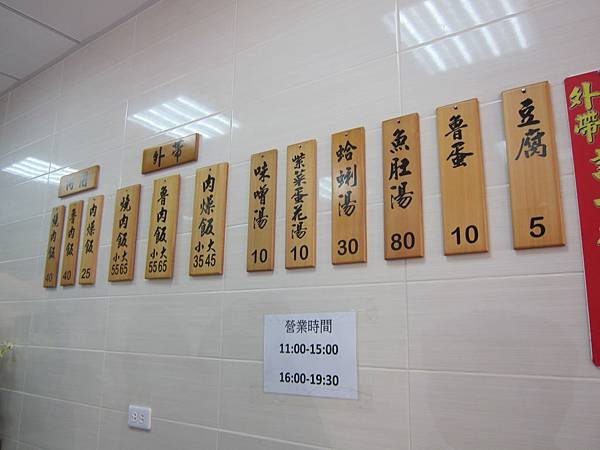 內用
燒肉飯 40
魯肉飯 40
肉燥飯 25
外帶
燒肉飯 大65 小55
魯肉飯 大65 小55
肉燥飯 大45 小35
味噌湯 10
紫菜蛋花湯 10
蛤蜊湯 30
魚肚湯 80
魯蛋 10
豆腐 5
營業時間
11:00-15:00
16:00-19:30
外帶